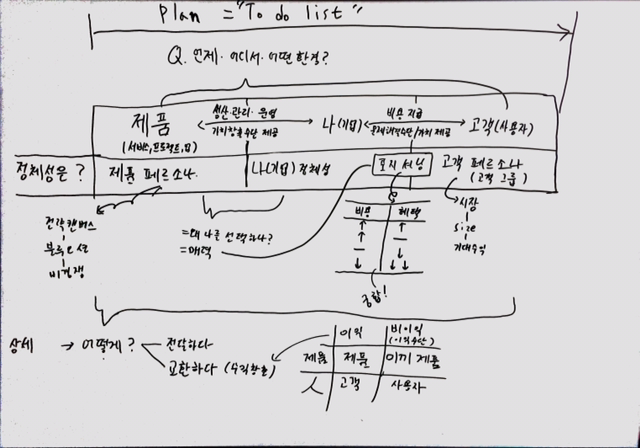 Plan = "To do list"
Q. 언제. 어디서. 어떤 환경?
제품
(서비스, 프로젝트, 앱)
생산·관리·운영
가치창출수단 제공
나(기업)
비용지급
문제해결수단/가치 제공
고객(사용자)
정체성은?
제품 페르소나
나(기업) 정체성
포지셔닝
고객 페르소나
(고객 그룹)
전략캔버스
블루오션
비경쟁
= 왜 나를 선택하나?
= 매력
비용
혜택
궁합!
시장
size
기대수익
상세
→ 어떻게?
전달하다
교환하다 (수익창출)
이익
비이익
(이익수단)
제품
제품
미끼 제품
人
고객
사용자